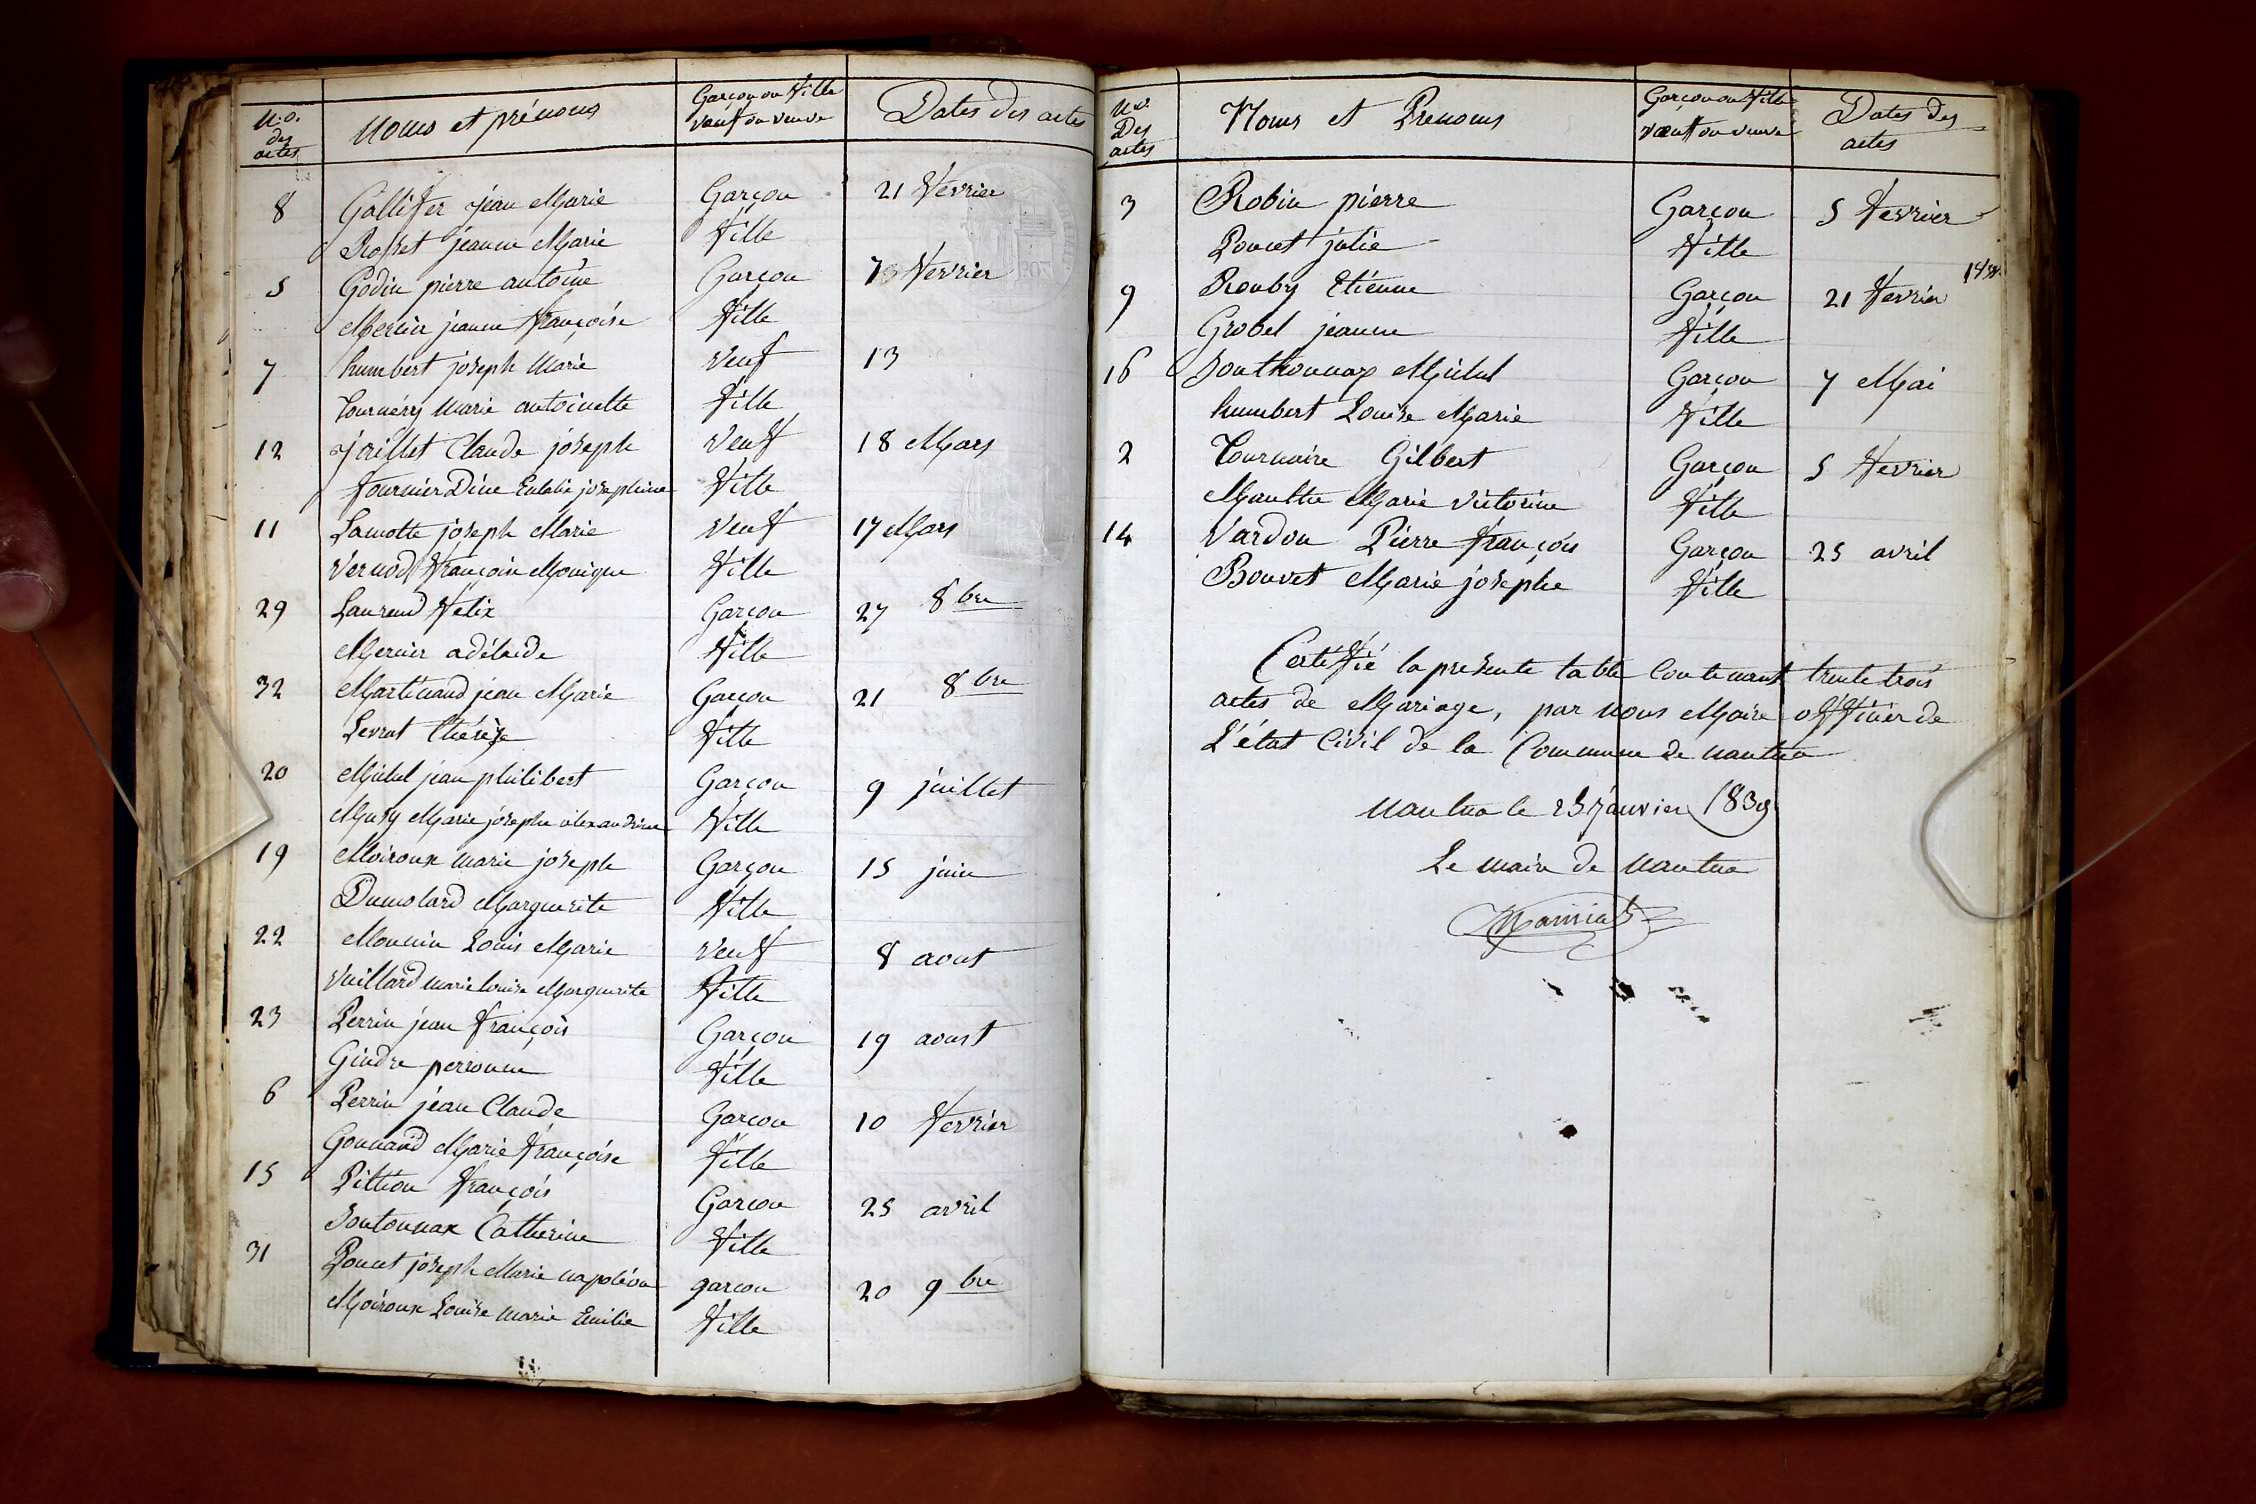 N.o. des actes
Noms et prénoms
Garçon ou fille veuf ou veuve
Dates des actes
8 Galliffer jean Marie Garçon 21 février
Rosset jeanne Marie fille
5 Godin pierre antoine Garçon février
Mercier jeanne françoise fille
7 humbert joseph Marie veuf 13
Tournéry Marie antoinette fille
12 jaillet Claude joseph veuf 18 Mars
fournier Dine Eulalie josephine fille
11 Lamotte joseph Marie veuf 17 Mars
Vernod françoise Monique fille
29 Laurend félix Garçon 27 8bre
Mercier adélaide fille
32 Martinand jean Marie Garçon 21 8bre
Levrat thérèse fille
20 Michel jean philibert Garçon 9 juillet
Musy Marie josephe alexandrine fille
19 Moiroux marie joseph Garçon 15 juin
Dumolard Marguerite fille
22 Mounin Louis Marie veuf 8 aout
Vuillard marie louise Marguerite fille
23 Perrin jean françois Garçon 19 aoust
Gindre perronne fille
6 Perrin jean Claude Garçon 10 fevrier
Gonnand Marie françoise fille
15 Pittion françois Garcon 25 avril
Sontonnax Catherine fille
31 Poncet joseph Marie napoléon garcon 20 9bre
Moiroux Louise marie Emilie fille
Nos. Des actes
Noms et Prenoms
Garçon ou fille veuf ou veuve
Dates des actes
3 Robin pierre Garçon 5 fevrier
Poncet julie fille
9 Rouby Etienne Garçon 21 fevrier
Grobel jeanne fille
16 Sonthonnax Michel Garçon 7 Mai
humbert Louise Marie fille
2 Tournaire Gilbert Garçon 5 fevrier
Marie victorine fille
14 Vardon Pierre françois Garçon 25 avril
Bouvet Marie josephe fille
Certifié la presente table Contenant trente trois
actes de Mariage, par nous Maire officier de
L'état Civil de la Commune de nantua
Nantua le 25 janvier 1839
Le maire de Nantua